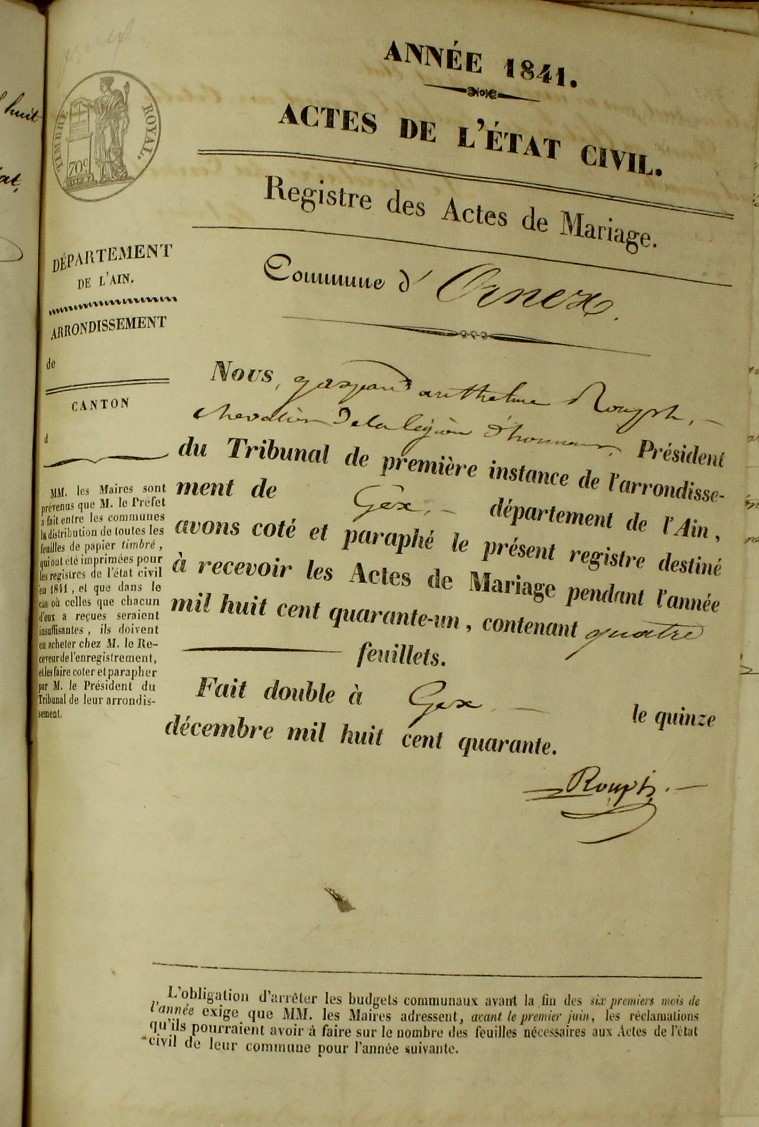 huit
at,
TIMBRE ROYAL.
70c
ANNÉE 1841.
ACTES DE L'ÉTAT CIVIL.
Registre des Actes de Mariage.
Commune d' Ornex.
DÉPARTEMENT
DE L'AIN.
ARRONDISSEMENT
de
CANTON
d
MM. les Maires sont
prévenus que M. le Préfet
a fait entre les communes
la distribution de toutes les
feuilles de papier timbré,
qui ont été imprimées pour
les registres de l'état civil
en 1841, et que dans le
cas où celles que chacun
d'eux a reçues seraient
insuffisantes, ils doivent
en acheter chez M. le Re-
ceveur de l'enregistrement,
et les faire coter et parapher
par M. le Président du
Tribunal de leur arrondis-
sement.
Nous, gaspard anthelme Rouph,
chevalier de la légion d'honneur, Président
du Tribunal de première instance de l'arrondisse-
ment de Gex, département de l'Ain,
avons coté et paraphé le présent registre destiné
à recevoir les Actes de Mariage pendant l'année
mil huit cent quarante-un, contenant quatre
feuillets.
Fait double à Gex le quinze
décembre mil huit cent quarante.
Rouph
L'obligation d'arrêter les budgets communaux avant la fin des six premiers mois de
l'année exige que MM. les Maires adressent, avant le premier juin, les réclamations
qu'ils pourraient avoir à faire sur le nombre des feuilles nécessaires aux Actes de l'état
civil de leur commune pour l'année suivante.